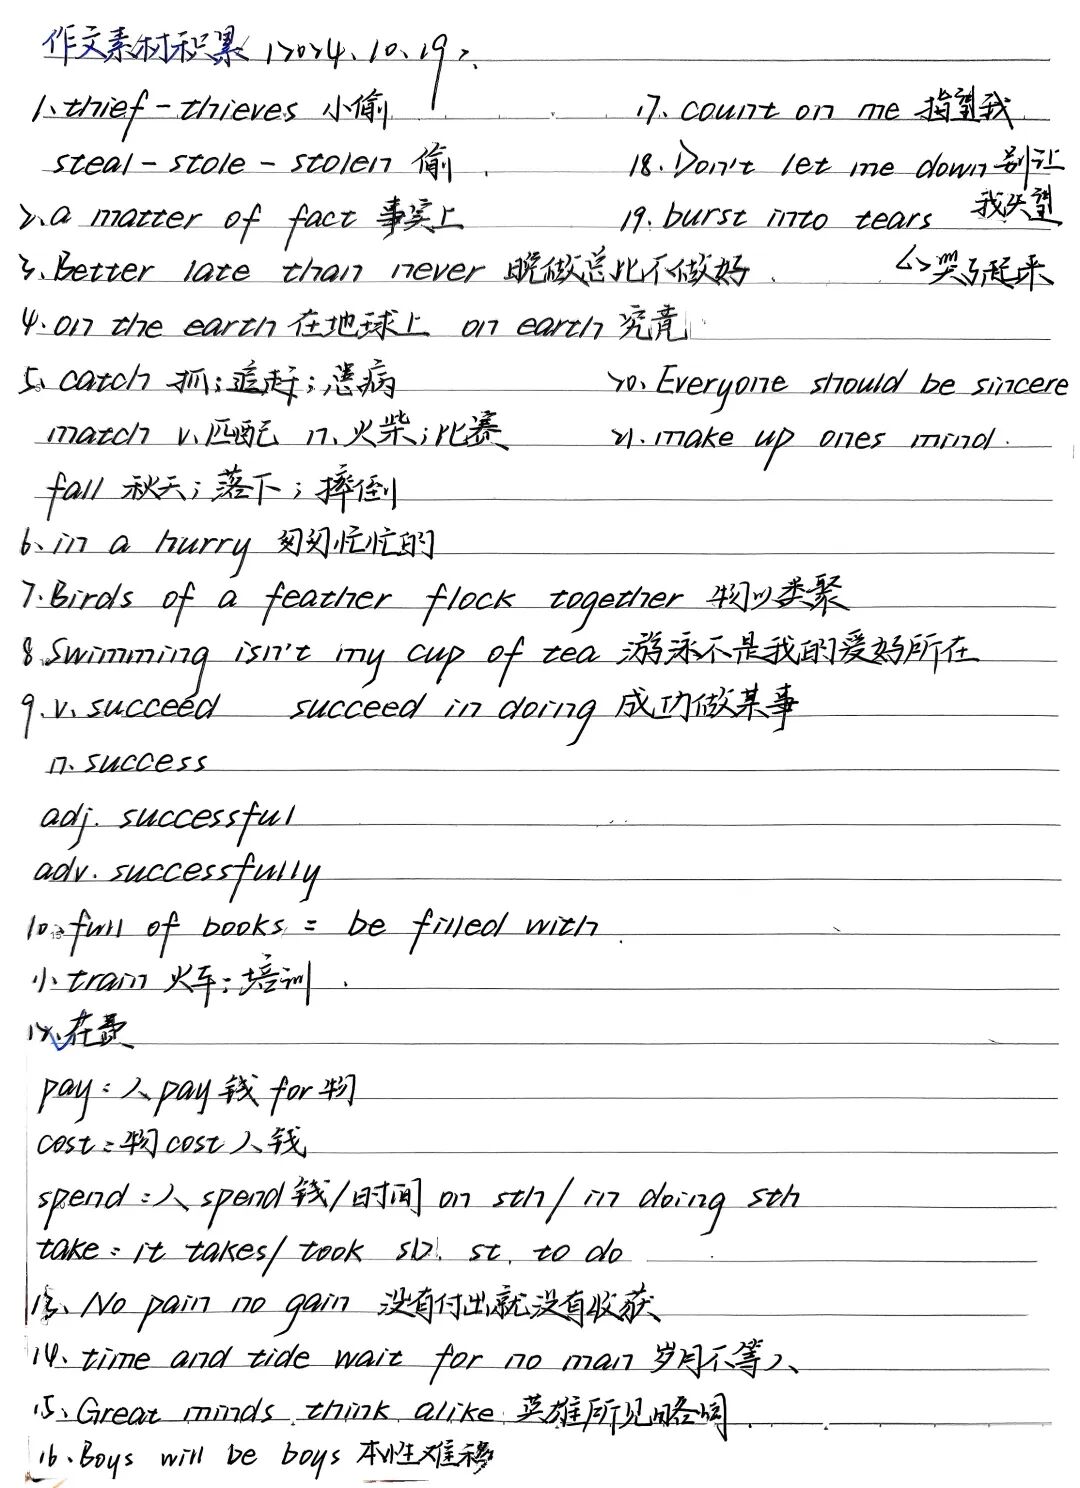 作文素材积累 (2024.10.19).
1、thief-thieves 小偷
steal-stole-stolen 偷
2、a matter of fact 事实上
3、Better late than never 晚做总比不做好
4、on the earth 在地球上 on earth 究竟
5、catch 抓;追赶;患病
match v.匹配 n.火柴;比赛
fall 秋天;落下;摔倒
6、in a hurry 匆匆忙忙的
7.Birds of a feather flock together 物以类聚
8.Swimming isn't my cup of tea 游泳不是我的爱好所在
9.v.succeed succeed in doing 成功做某事
n.success
adj.successful
adv.successfully
10.full of books = be filled with
11、train 火车;培训
12、花费
pay:人pay钱for物
cost:物cost人钱
spend:人spend钱/时间 on sth/in doing sth
take:it takes/took sb. st. to do
13、No pain no gain 没有付出就没有收获
14、time and tide wait for no man 岁月不等人
15、Great minds think alike 英雄所见略同
16.Boys will be boys 本性难移
17.count on me 指望我
18.Don't let me down 别让
我失望
19.burst into tears
哭了起来
20、Everyone should be sincere
21.make up ones mind.